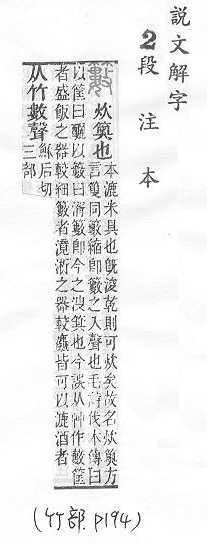 說文解字
2段注本
籔 炊䉛也 本漉米具也旣浚乾則可炊矣故名炊䉛方
言䉛同籔縮卽籔之入聲也毛詩伐木傳曰
以筐曰釃以籔曰湑籔卽今之溲箕也今誤从艸作藪筐
者盛飯之器較細籔者漉淅之器較麤皆可以漉酒者
从竹數聲 蘇后切
三部
(竹部.P194)